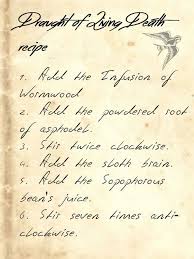 Draught of Living Death
recipe
1. Add the Infusion of
Wormwood
2. Add the powdered root
of asphodel.
3. Stir twice clockwise.
4. Add the sloth brain.
5. Add the Sopophorous
bean's juice.
6. Stir seven times anti-
clockwise.